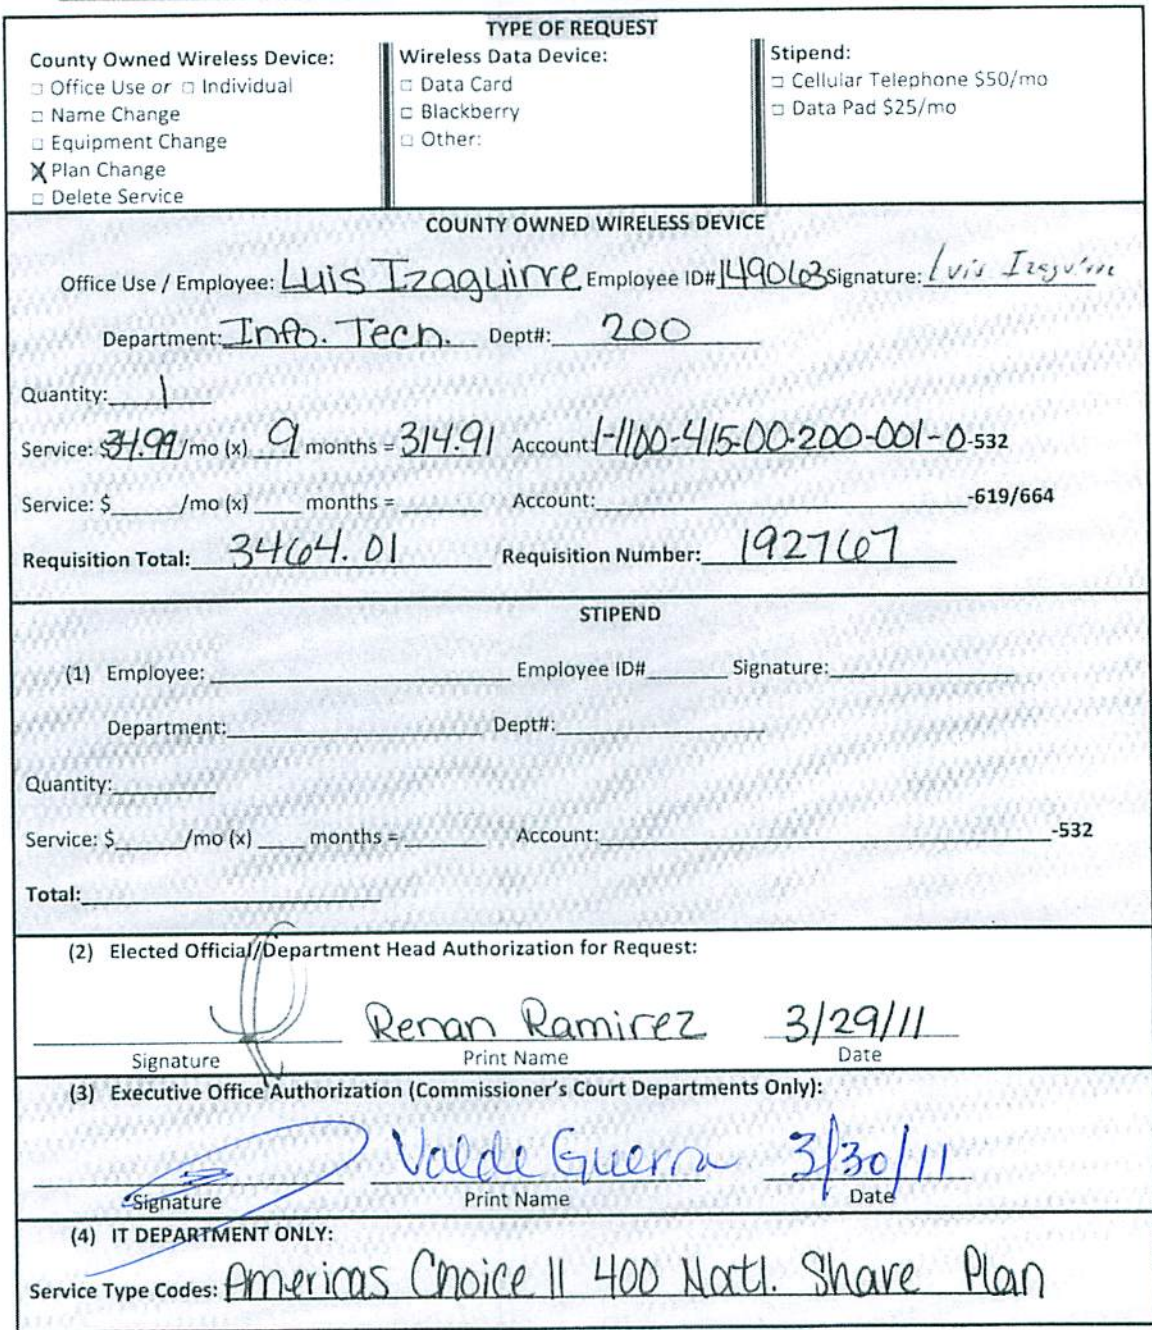 TYPE OF REQUEST
County Owned Wireless Device:
□ Office Use or □ Individual
□ Name Change
□ Equipment Change
X Plan Change
□ Delete Service
Wireless Data Device:
□ Data Card
□ Blackberry
□ Other:
Stipend:
□ Cellular Telephone $50/mo
□ Data Pad $25/mo
COUNTY OWNED WIRELESS DEVICE
Office Use / Employee: Luis Izaguirre Employee ID# 149063 Signature: Luis Izaguirre
Department: Info. Tech. Dept#: 200
Quantity: 1
Service: $34.99/mo (x) 9 months = 314.91 Account: 1-1100-415-00-200-001-0-532
Service: $ /mo (x) months = Account: -619/664
Requisition Total: 3464.01 Requisition Number: 192767
STIPEND
(1) Employee: Employee ID# Signature:
Department: Dept#:
Quantity:
Service: $ /mo (x) months = Account: -532
Total:
(2) Elected Official/Department Head Authorization for Request:
Renan Ramirez 3/29/11
Signature Print Name Date
(3) Executive Office Authorization (Commissioner's Court Departments Only):
Valde Guerra 3/30/11
Signature Print Name Date
(4) IT DEPARTMENT ONLY:
Service Type Codes: Americas Choice II 400 Natl. Share Plan